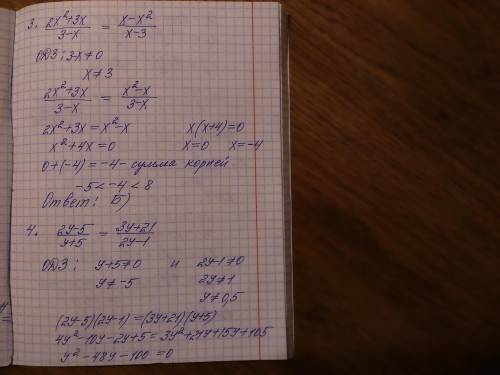 3. (2x²+3x)/(3-x) = (x-x²)/(x-3)
ОДЗ: 3-x≠0
x≠3
(2x²+3x)/(3-x) = (x²-x)/(3-x)
2x²+3x=x²-x x(x+4)=0
x²+4x=0 x=0 x=-4
0+(-4)=-4- сумма корней
-5<-4<8
Ответ: Б)
4. (2y-5)/(y+5) = (3y+21)/(2y-1)
ОДЗ: y+5≠0 и 2y-1≠0
y≠-5 2y≠1
y≠0,5
(2y-5)(2y-1)=(3y+21)(y+5)
4y²-10y-2y+5=3y²+21y+15y+105
y²-48y-100=0